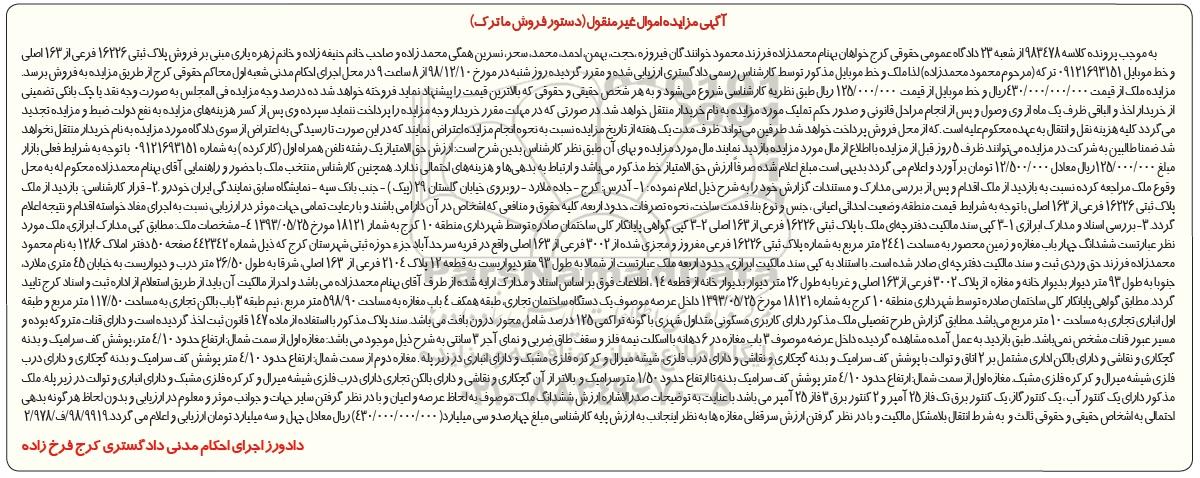 آگهی مزایده اموال غیر منقول (دستور فروش ماترک)
به موجب پرونده کلاسه 983478 از شعبه 23 دادگاه عمومی حقوقی کرج خواهان بهنام محمدزاده فرزند محمود خوانندگان فیروزه، حجت، بهمن، احمد، محمد، سحر، نسرین همگی محمد زاده و صاحب خانم حنیفه زاده و خانم زهره یاری مبنی بر فروش پلاک ثبتی 16226 فرعی از 163 اصلی
و خط موبایل 09121693151 ترکه (مرحوم محمود محمدزاده) لذا ملک و خط موبایل مذکور توسط کارشناس رسمی دادگستری ارزیابی شده و مقرر گردیده روز شنبه در مورخ 98/12/10 از 8 ساعت 9 در محل اجرای احکام مدنی شعبه اول محاکم حقوقی کرج از طریق مزایده به فروش برسد.
مزایده ملک از قیمت 430/000/000/000 ریال و خط موبایل از قیمت 125/000/000 ریال طبق نظریه کارشناسی شروع می‌شود و به هر شخص حقیقی و حقوقی که بالاترین قیمت را پیشنهاد نماید فروخته خواهد شد ده درصد وجه مزایده فی المجلس به صورت وجه نقد یا چک بانکی تضمینی
از خریدار اخذ و الباقی ظرف یک ماه از وی وصول و پس از انجام مراحل قانونی و صدور حکم تملیک مورد مزایده به نام خریدار منتقل خواهد شد. در صورتی که در مهلت مقرر خریدار وجه مزایده را پرداخت ننماید سپرده وی پس از کسر هزینه‌های مزایده به نفع دولت ضبط و مزایده تجدید
می‌گردد کلیه هزینه نقل و انتقال به عهده محکوم‌علیه است. که از محل فروش پرداخت خواهد شد طرفین می‌تواند ظرف مدت یک هفته از تاریخ مزایده نسبت به نحوه انجام مزایده اعتراض نمایند که در این صورت تا رسیدگی به اعتراض از سوی دادگاه مورد مزایده به نام خریدار منتقل نخواهد
شد ضمنا طالبین به شرکت در مزایده می‌توانند ظرف 5 روز قبل از مزایده با اطلاع از مال مورد مزایده بازدید نمایند مال مورد مزایده و بهای آن طبق نظر کارشناس بدین شرح است: ارزش حق الامتیاز یک رشته تلفن همراه اول (کارکرده) به شماره 09121693151 با توجه به شرایط فعلی بازار
مبلغ 125/000/000 ریال معادل 12/500/000 تومان برآورد و اعلام می گردد بدیهی است مبلغ اعلام شده صرفاً ارزش حق الامتیاز خط مذکور می‌باشد و ارتباط به بدهی‌ها و هزینه‌های احتمالی ندارد. همچنین کارشناس منتخب ملک با حضور و راهنمایی آقای بهنام محمدزاده محکوم له به محل
وقوع ملک مراجعه کرده نسبت به بازدید از ملک اقدام و پس از بررسی مدارک و مستندات گزارش خود را به شرح ذیل اعلام نموده: 1- آدرس: کرج - جاده ملارد - روبروی خیابان گلستان 29 (بیک) - جنب بانک سپه - نمایشگاه سابق نمایندگی ایران خودرو 2- قرار کارشناسی: بازدید از ملک
پلاک ثبتی 16226 فرعی از 163 اصلی با توجه به شرایط قیمت منطقه، وضعیت احداثی اعیانی، جنس و نوع بنا، قدمت ساخت، نحوه تصرفات، حدود اربعه، کلیه حقوق و منافعی که اشخاص در آن دارا می باشند و با رعایت تمامی جهات موثر در ارزیابی، نسبت به اجرای مفاد خواسته اقدام و نتیجه اعلام
گردد. 3- بررسی اسناد و مدارک ابرازی 1-3 کپی سند مالکیت دفترچه‌ای ملک با پلاک ثبتی 16226 فرعی از 163 اصلی 2-3 کپی گواهی پایانکار کلی ساختمان صادره توسط شهرداری منطقه 10 کرج به شمار 18121 مورخ 1393/05/25 4- مشخصات ملک: مطابق کپی مدارک ابرازی، ملک مورد
نظر عبارتست ششدانگ چهار باب مغازه و زمین محصور به مساحت 2441 متر مربع به شماره پلاک ثبتی 16226 فرعی مفروز و مجزی شده از 3002 فرعی از 163 اصلی واقع در قریه سرحدآباد جزء حوزه ثبتی شهرستان کرج که ذیل شماره 442342 صفحه 50 دفتر املاک 1286 به نام محمود
محمدزاده فرزند حق وردی ثبت و سند مالکیت دفترچه ای صادر شده است. با استناد به کپی سند مالکیت ابرازی، حدود اربعه ملک عبارتست از شمالا به طول 93 متر دیواریست به قطعه 12 پلاک 2104 فرعی از 163 اصلی، شرقا به طول 26/50 متر درب و دیواریست به خیابان 45 متری ملارد،
جنوبا به طول 93 متر دیوار بدیوار خانه و مغازه از پلاک 3002 فرعی از 163 اصلی و غربا به طول 26 متر دیوار بدیوار خانه از قطعه 14. اطلاعات فوق بر اساس اسناد و مدارک ارایه شده از طرف آقای بهنام محمدزاده می باشد و احراز مالکیت آن باید از طریق استعلام از اداره ثبت و اسناد کرج تایید
گردد. مطابق گواهی پایانکار کلی ساختمان صادره توسط شهرداری منطقه 10 کرج به شماره 18121 مورخ 1393/05/25 داخل عرصه موصوف یک دستگاه ساختمان تجاری، طبقه همکف 4 باب مغازه به مساحت 598/90 متر مربع، نیم طبقه 3 باب بالکن تجاری به مساحت 117/50 متر مربع و طبقه
اول انباری تجاری به مساحت 10 متر مربع می‌باشد. مطابق گزارش طرح تفصیلی ملک مذکور دارای کاربری مسکونی متداول شهری با گونه تراکمی 125 درصد شامل محور درون بافت می‌باشد. سند پلاک مذکور با استفاده از ماده 147 قانون ثبت اخذ گردیده است و دارای قنات متروکه بوده و
مسیر عبور قنات مشخص نمی‌باشد. طبق بازدید به عمل آمده مشاهده گردیده داخل عرصه موصوف 3 باب مغازه در 6 دهانه با اسکلت نیمه فلز و سقف طاق ضربی و نمای آجر 3 سانتی به شرح ذیل موجود می باشد: مغازه اول از سمت شمال: ارتفاع حدود 4/10 متر، پوشش کف سرامیک و بدنه
گچکاری و نقاشی و دارای بالکن اداری مشتمل بر 2 اتاق و توالت با پوشش کف سرامیک و بدنه گچکاری و نقاشی و دارای درب فلزی، شیشه میرال و کرکره فلزی مشبک و دارای انباری در زیر پله. مغازه دوم از سمت شمال: ارتفاع حدود 4/10 متر پوشش کف سرامیک و بدنه گچکاری و دارای درب
فلزی شیشه میرال و کرکره فلزی مشبک. مغازه اول از سمت شمال: ارتفاع حدود 4/10 متر پوشش کف سرامیک بدنه تا ارتفاع حدود 1/50 متر سرامیک و بالاتر از آن گچکاری و نقاشی و دارای بالکن تجاری دارای درب فلزی شیشه میرال و کرکره فلزی مشبک و دارای انباری و توالت در زیر پله ملک
مذکور دارای یک کنتور آب، یک کنتور گاز، یک کنتور برق تک فاز 25 آمپر و 2 کنتور برق 3 فاز 25 آمپر می باشد با عنایت به توضیحات صدرالاشاره ارزش ششدانگ ملک موصوف به لحاظ عرصه و اعیان و با در نظر گرفتن سایر جهات و جوانب موثر و معلوم در ارزیابی و بدون لحاظ هرگونه بدهی
احتمالی به اشخاص حقیقی و حقوقی ثالث و به شرط انتقال بلامشکل مالکیت و با در نظر گرفتن ارزش سرقفلی مغازه ها به نظر اینجانب به ارزش پایه کارشناسی مبلغ چهارصد و سی میلیارد (430/000/000/000) ریال معادل چهل و سه میلیارد تومان ارزیابی و اعلام می گردد. 98/9919/ف 2/978/
دادورز اجرای احکام مدنی دادگستری کرج فرخ زاده